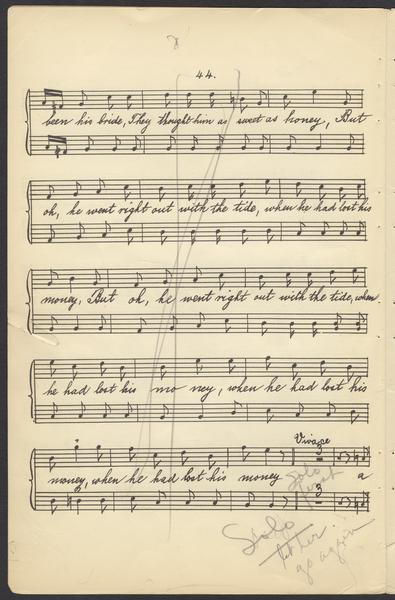 44.
been his bride, They thought him as sweet as honey, But
oh, he went right out with the tide, when he had lost his
money, But oh, he went right out with the tide, when
he had lost his mo ney, when he had lost his
Vivace
money, when he had lost his money a
Solo
Solo
go again